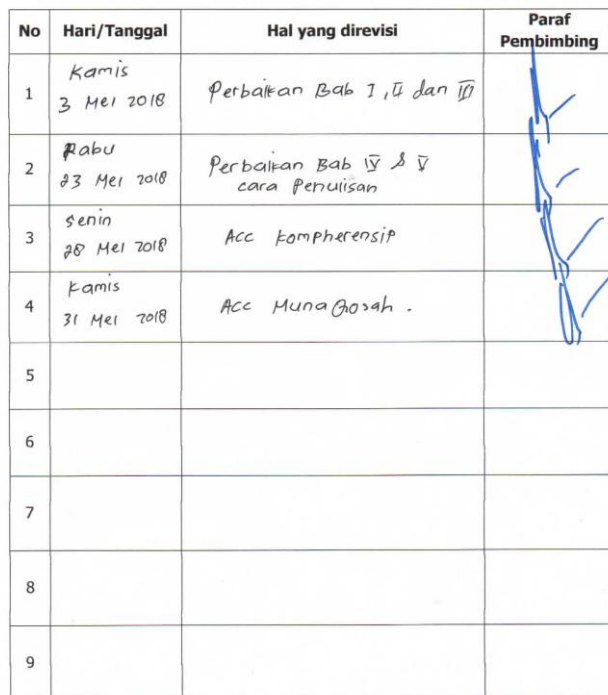 No Hari/Tanggal Hal yang direvisi Paraf
Pembimbing
1 Kamis
3 Mei 2018 Perbaikan Bab I, II dan III
2 Rabu
23 Mei 2018 Perbaikan Bab IV & V
cara Penulisan
3 Senin
28 Mei 2018 Acc Kompherensip
4 Kamis
31 Mei 2018 Acc MunaQosah .
5
6
7
8
9